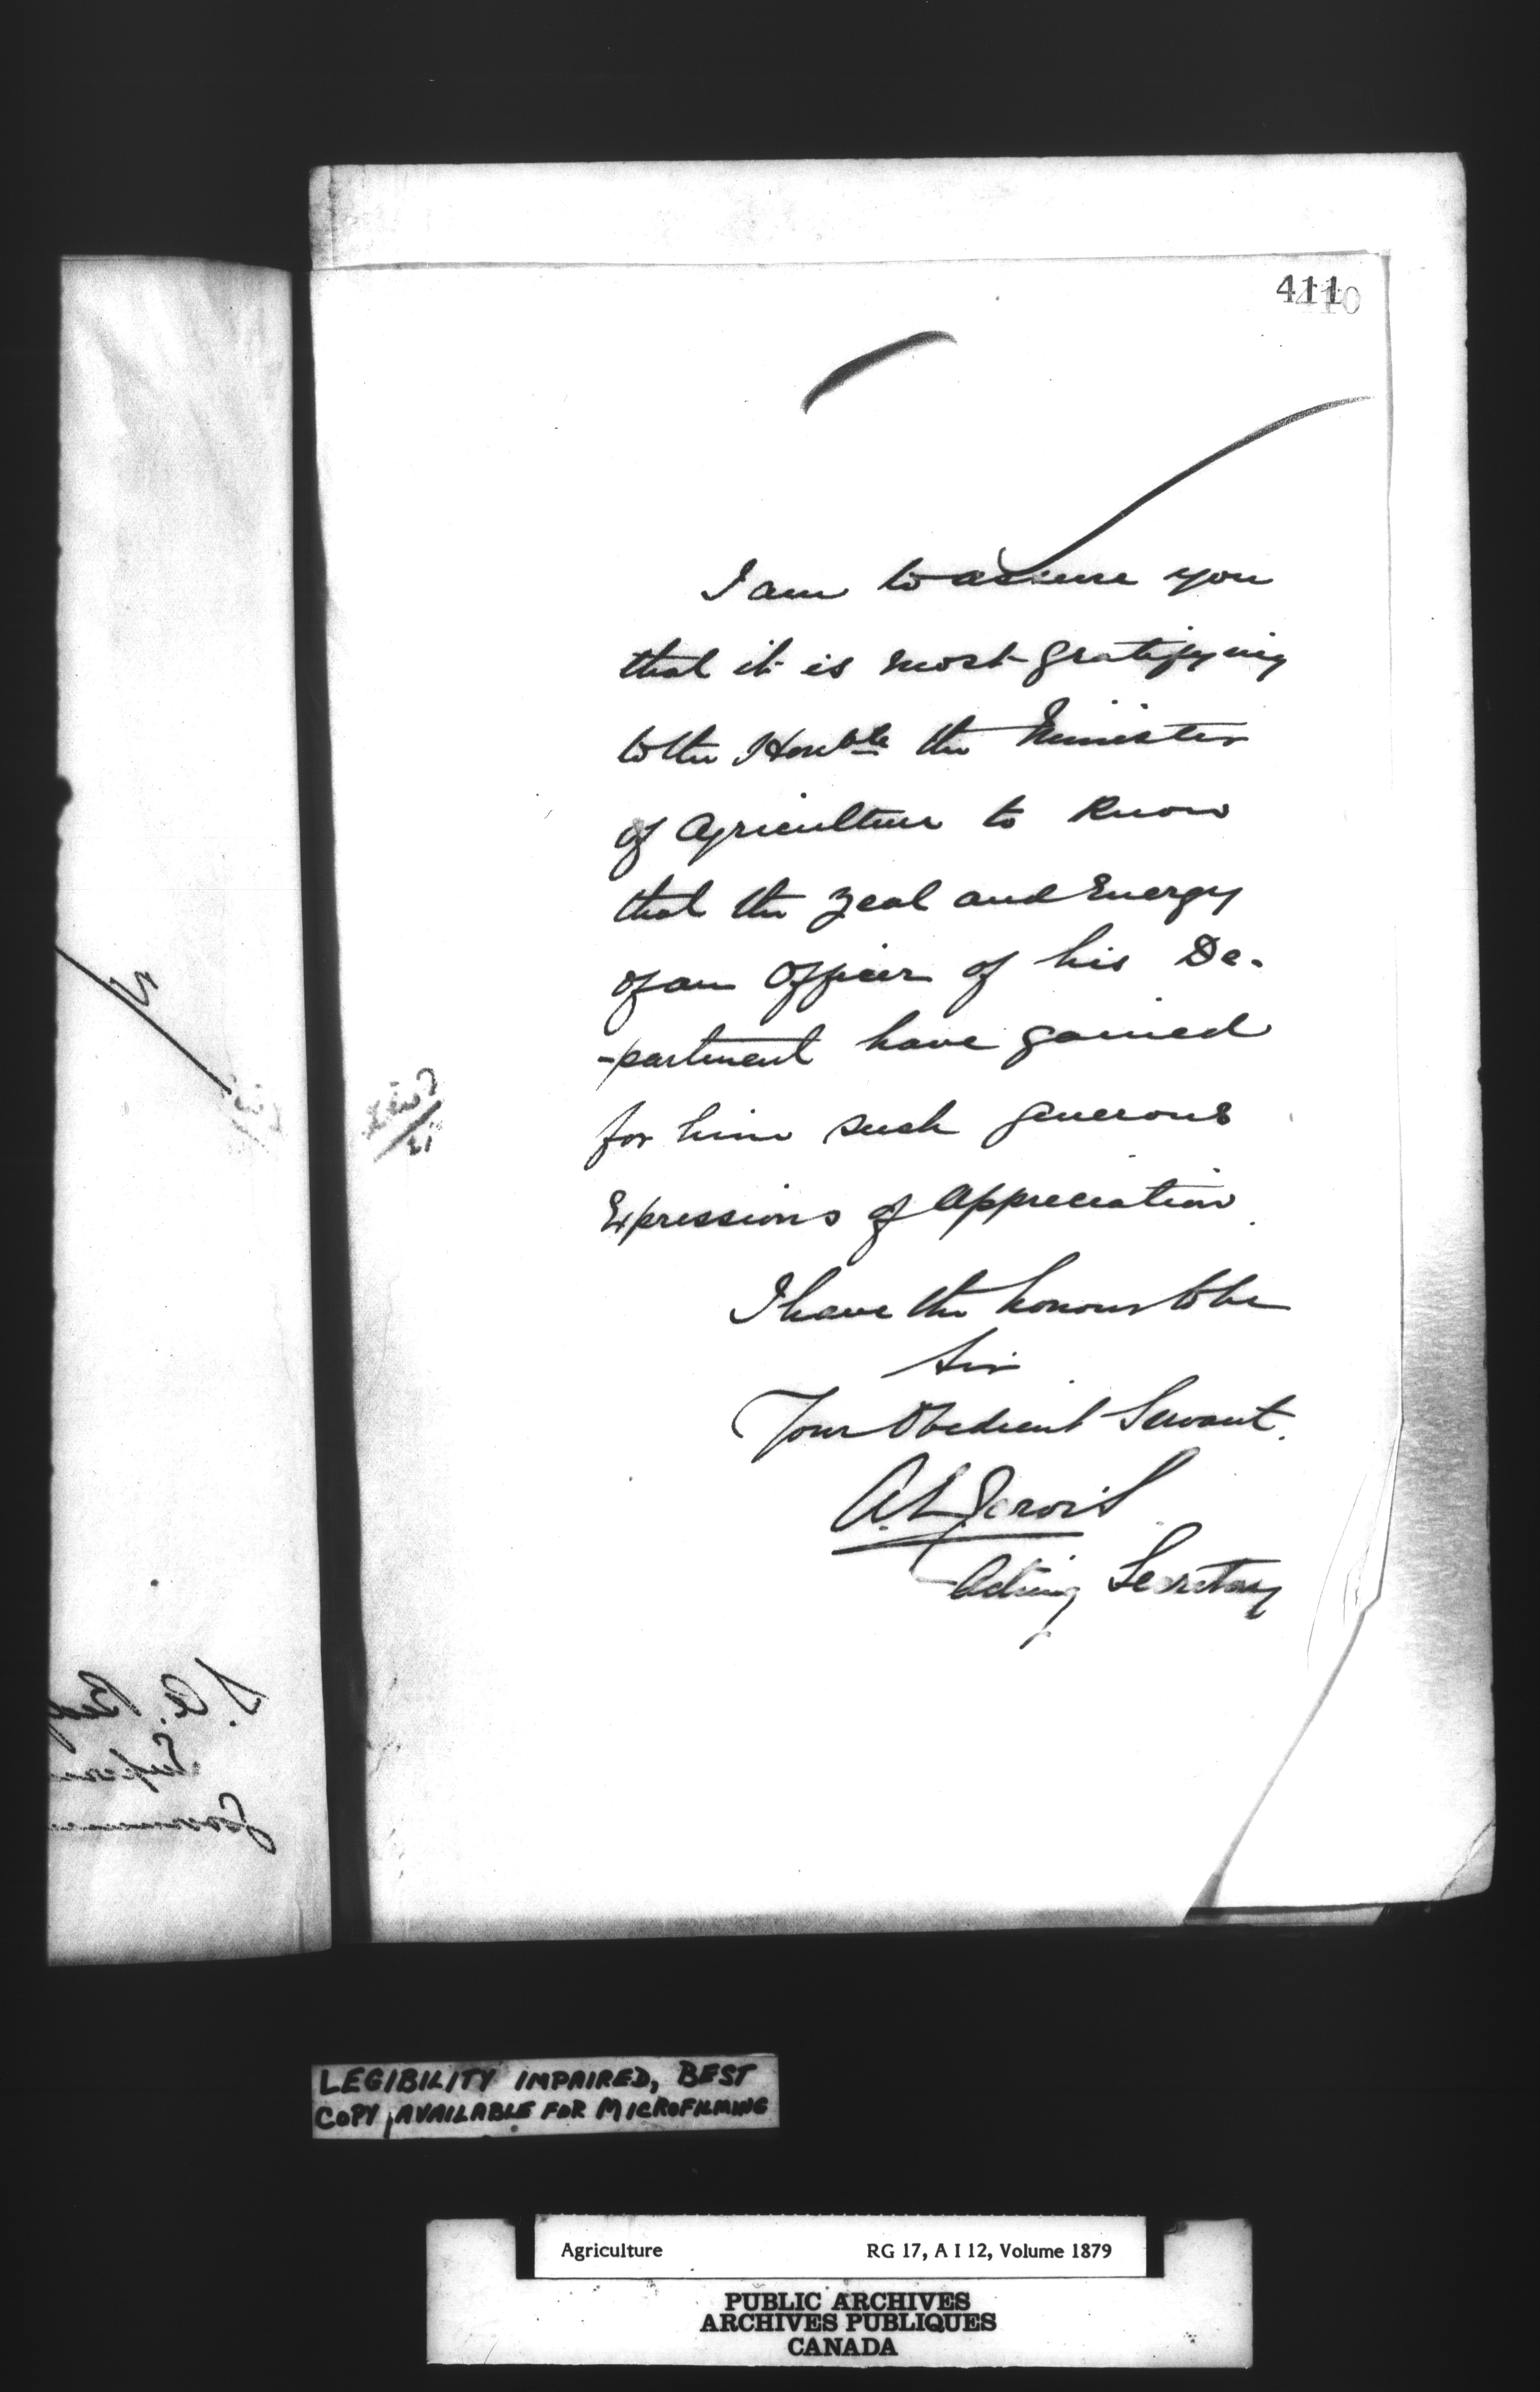 411
I am to assure you
that it is most gratifying
to the Honble the Minister
of Agriculture to Know
that the zeal and Energy
of an Officer of his De-
-partment have gained
for him such generous
Expressions of Appreciation.
I have the honour to be
Sir
Your Obedient Servant.
A. L. Jarvis
Acting Secretary
S. A. Bed
Superin
Governmen
LEGIBILITY IMPAIRED, BEST
COPY AVAILABLE FOR MICROFILMING
Agriculture RG 17, A I 12, Volume 1879
PUBLIC ARCHIVES
ARCHIVES PUBLIQUES
CANADA